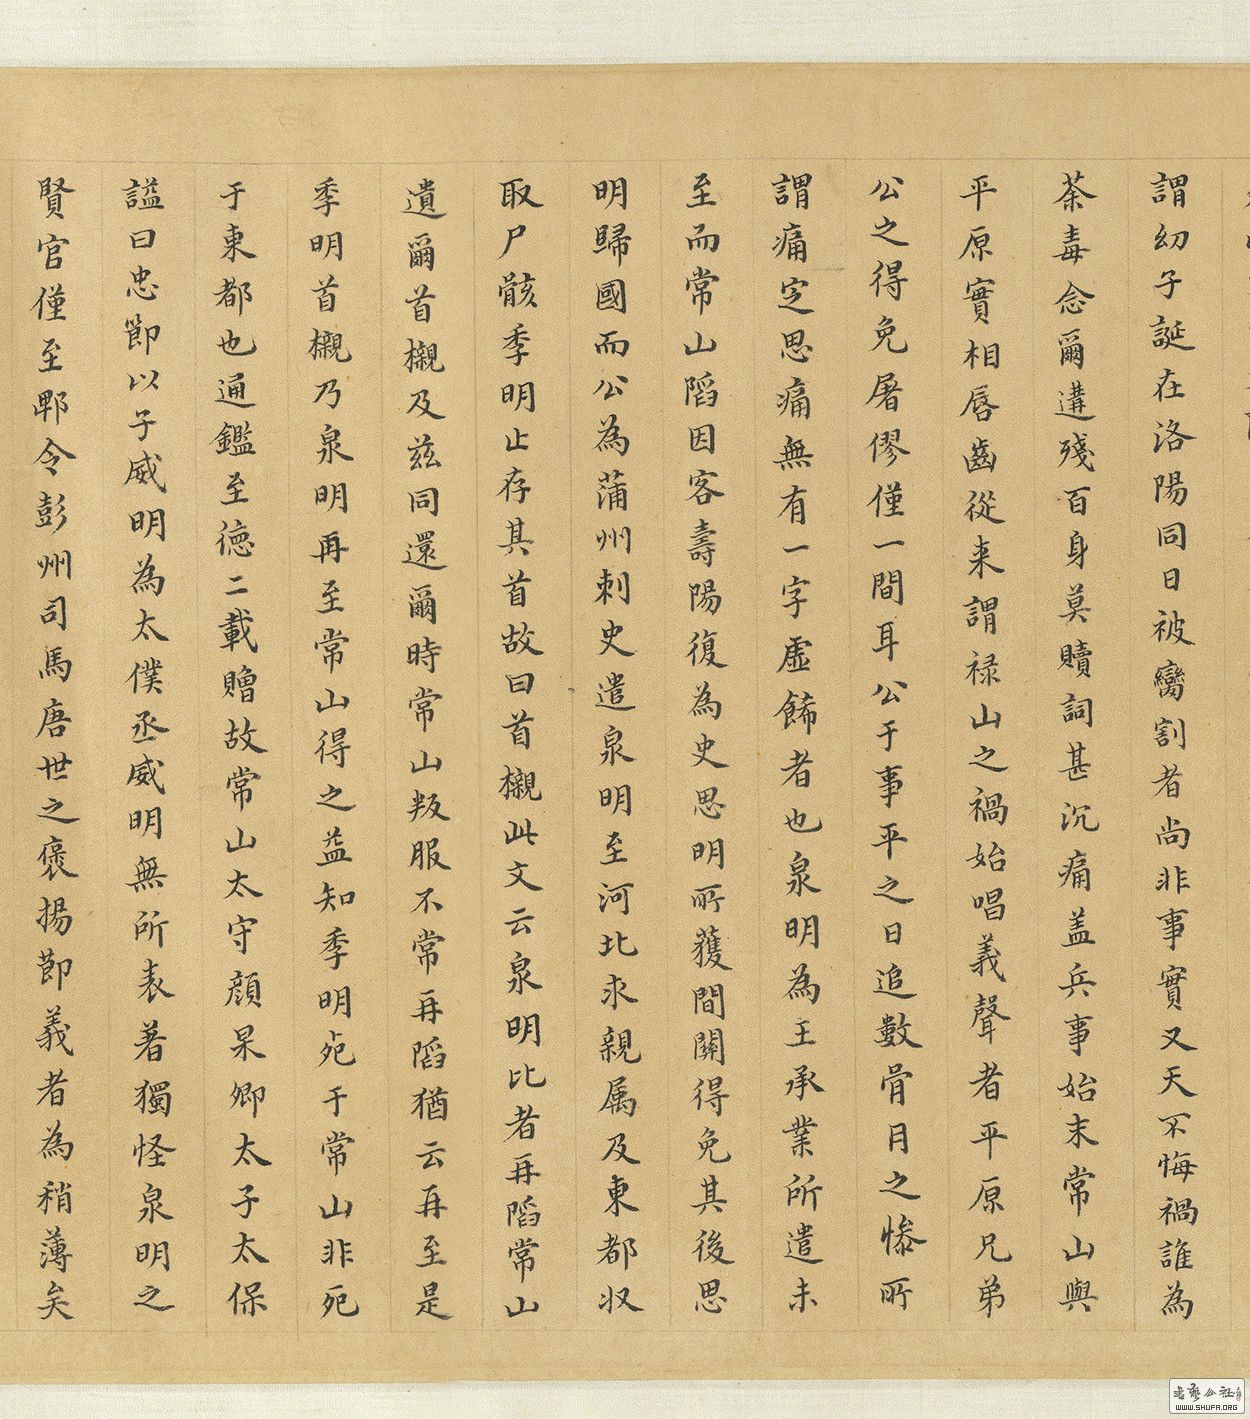 謂幼子誕在洛陽同日被臠割者尚非事實又天不悔禍誰為
荼毒念爾遘殘百身莫贖詞甚沉痛盖兵事始末常山與
平原實相唇齒從来謂禄山之禍始唱義聲者平原兄弟
公之得免屠僇僅一間耳公于事平之日追數骨月之慘所
謂痛定思痛無有一字虛餙者也泉明為王承業所遣未
至而常山䧟因客壽陽復為史思明所獲間關得免其後思
明歸國而公為蒲州刺史遣泉明至河北求親属及東都収
取尸骸季明止存其首故曰首櫬此文云泉明比者再䧟常山
遺爾首櫬及茲同還爾時常山叛服不常再䧟猶云再至是
季明首櫬乃泉明再至常山得之益知季明死于常山非死
于東都也通鑑至德二載贈故常山太守顔杲卿太子太保
諡曰忠節以子威明為太僕丞威明無所表著獨怪泉明之
賢官僅至郫令彭州司馬唐世之褒揚節義者為稍薄矣
書藝公社
WWW.SHUFA.ORG